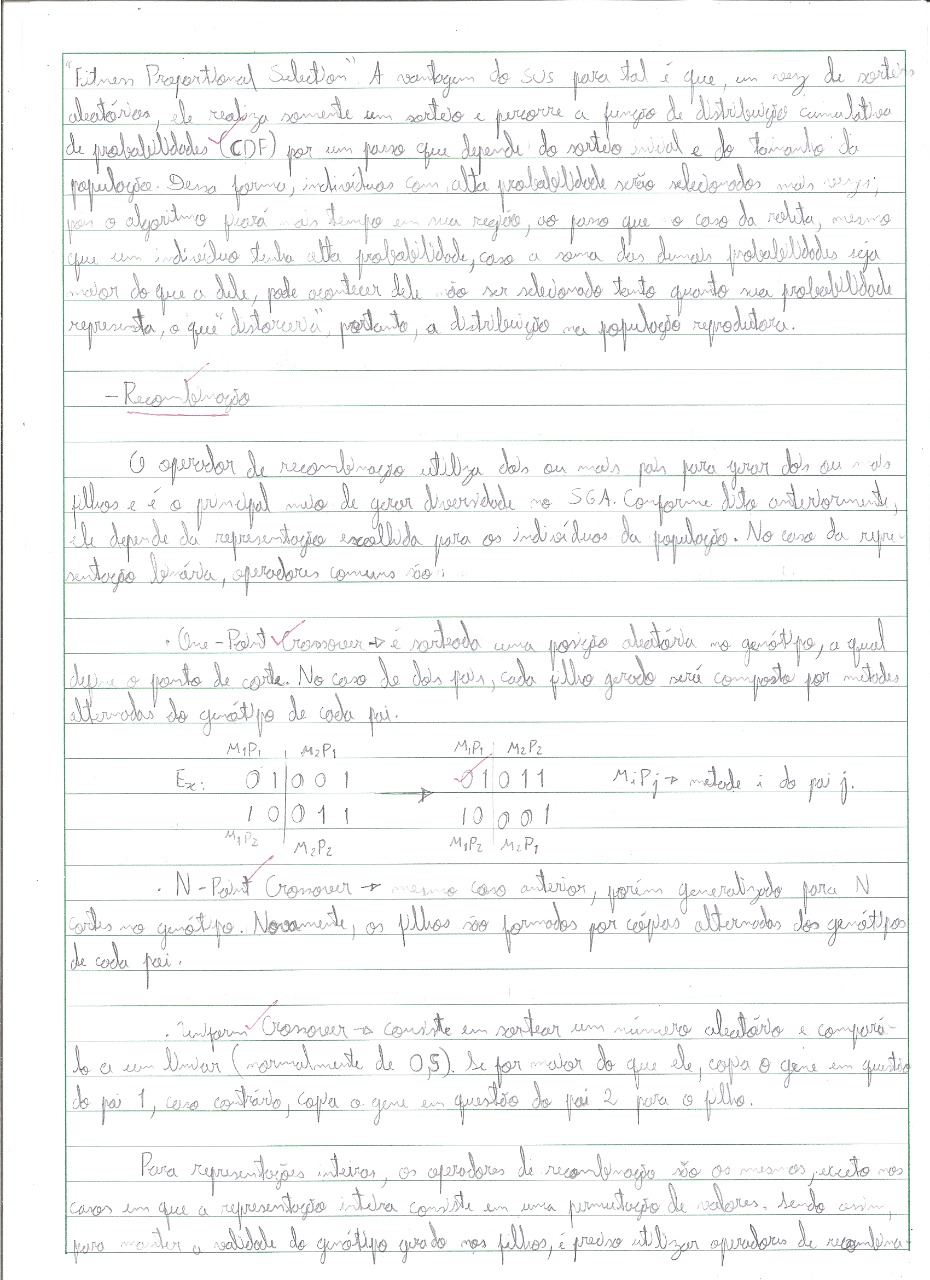 "Fitness Proportional Selection". A vantagem do SUS para tal é que, em vez de sorteios
aleatórios, ele realiza somente um sorteio e percorre a função de distribuição cumulativa
de probabilidades (CDF) por um passo que depende do sorteio inicial e do tamanho da
população. Dessa forma, indivíduos com alta probabilidade serão selecionados mais vezes,
pois o algoritmo ficará mais tempo em sua região, ao passo que no caso da roleta, mesmo
que um indivíduo tenha alta probabilidade, caso a soma das demais probabilidades seja
maior do que a dele, pode acontecer dele não ser selecionado tanto quanto sua probabilidade
representa, o que "distorceria", portanto, a distribuição na população reprodutora.
- Recombinação
O operador de recombinação utiliza dois ou mais pais para gerar dois ou mais
filhos e é o principal meio de gerar diversidade no SGA. Conforme dito anteriormente,
ele depende da representação escolhida para os indivíduos da população. No caso da repre-
sentação binária, operadores comuns são:
· One-Point Crossover → é sorteada uma posição aleatória no genótipo, a qual
define o ponto de corte. No caso de dois pais, cada filho gerado será composto por metades
alternadas do genótipo de cada pai.
M1P1 | M2P1 M1P1 | M2P2
Ex: 0 1 | 0 0 1 → 0 1 | 0 1 1 MiPj → metade i do pai j.
1 0 | 0 1 1 1 0 | 0 0 1
M1P2 | M2P2 M1P2 | M2P1
· N-Point Crossover → mesmo caso anterior, porém generalizado para N
cortes no genótipo. Novamente, os filhos são formados por cópias alternadas dos genótipos
de cada pai.
· Uniform Crossover → consiste em sortear um número aleatório e compará-
lo a um limiar (normalmente de 0,5). Se for maior do que ele, copia o gene em questão
do pai 1, caso contrário, copia o gene em questão do pai 2 para o filho.
Para representações inteiras, os operadores de recombinação são os mesmos, exceto nos
casos em que a representação inteira consiste em uma permutação de valores. Sendo assim,
para manter a validade do genótipo gerado nos filhos, é preciso utilizar operadores de recombina-